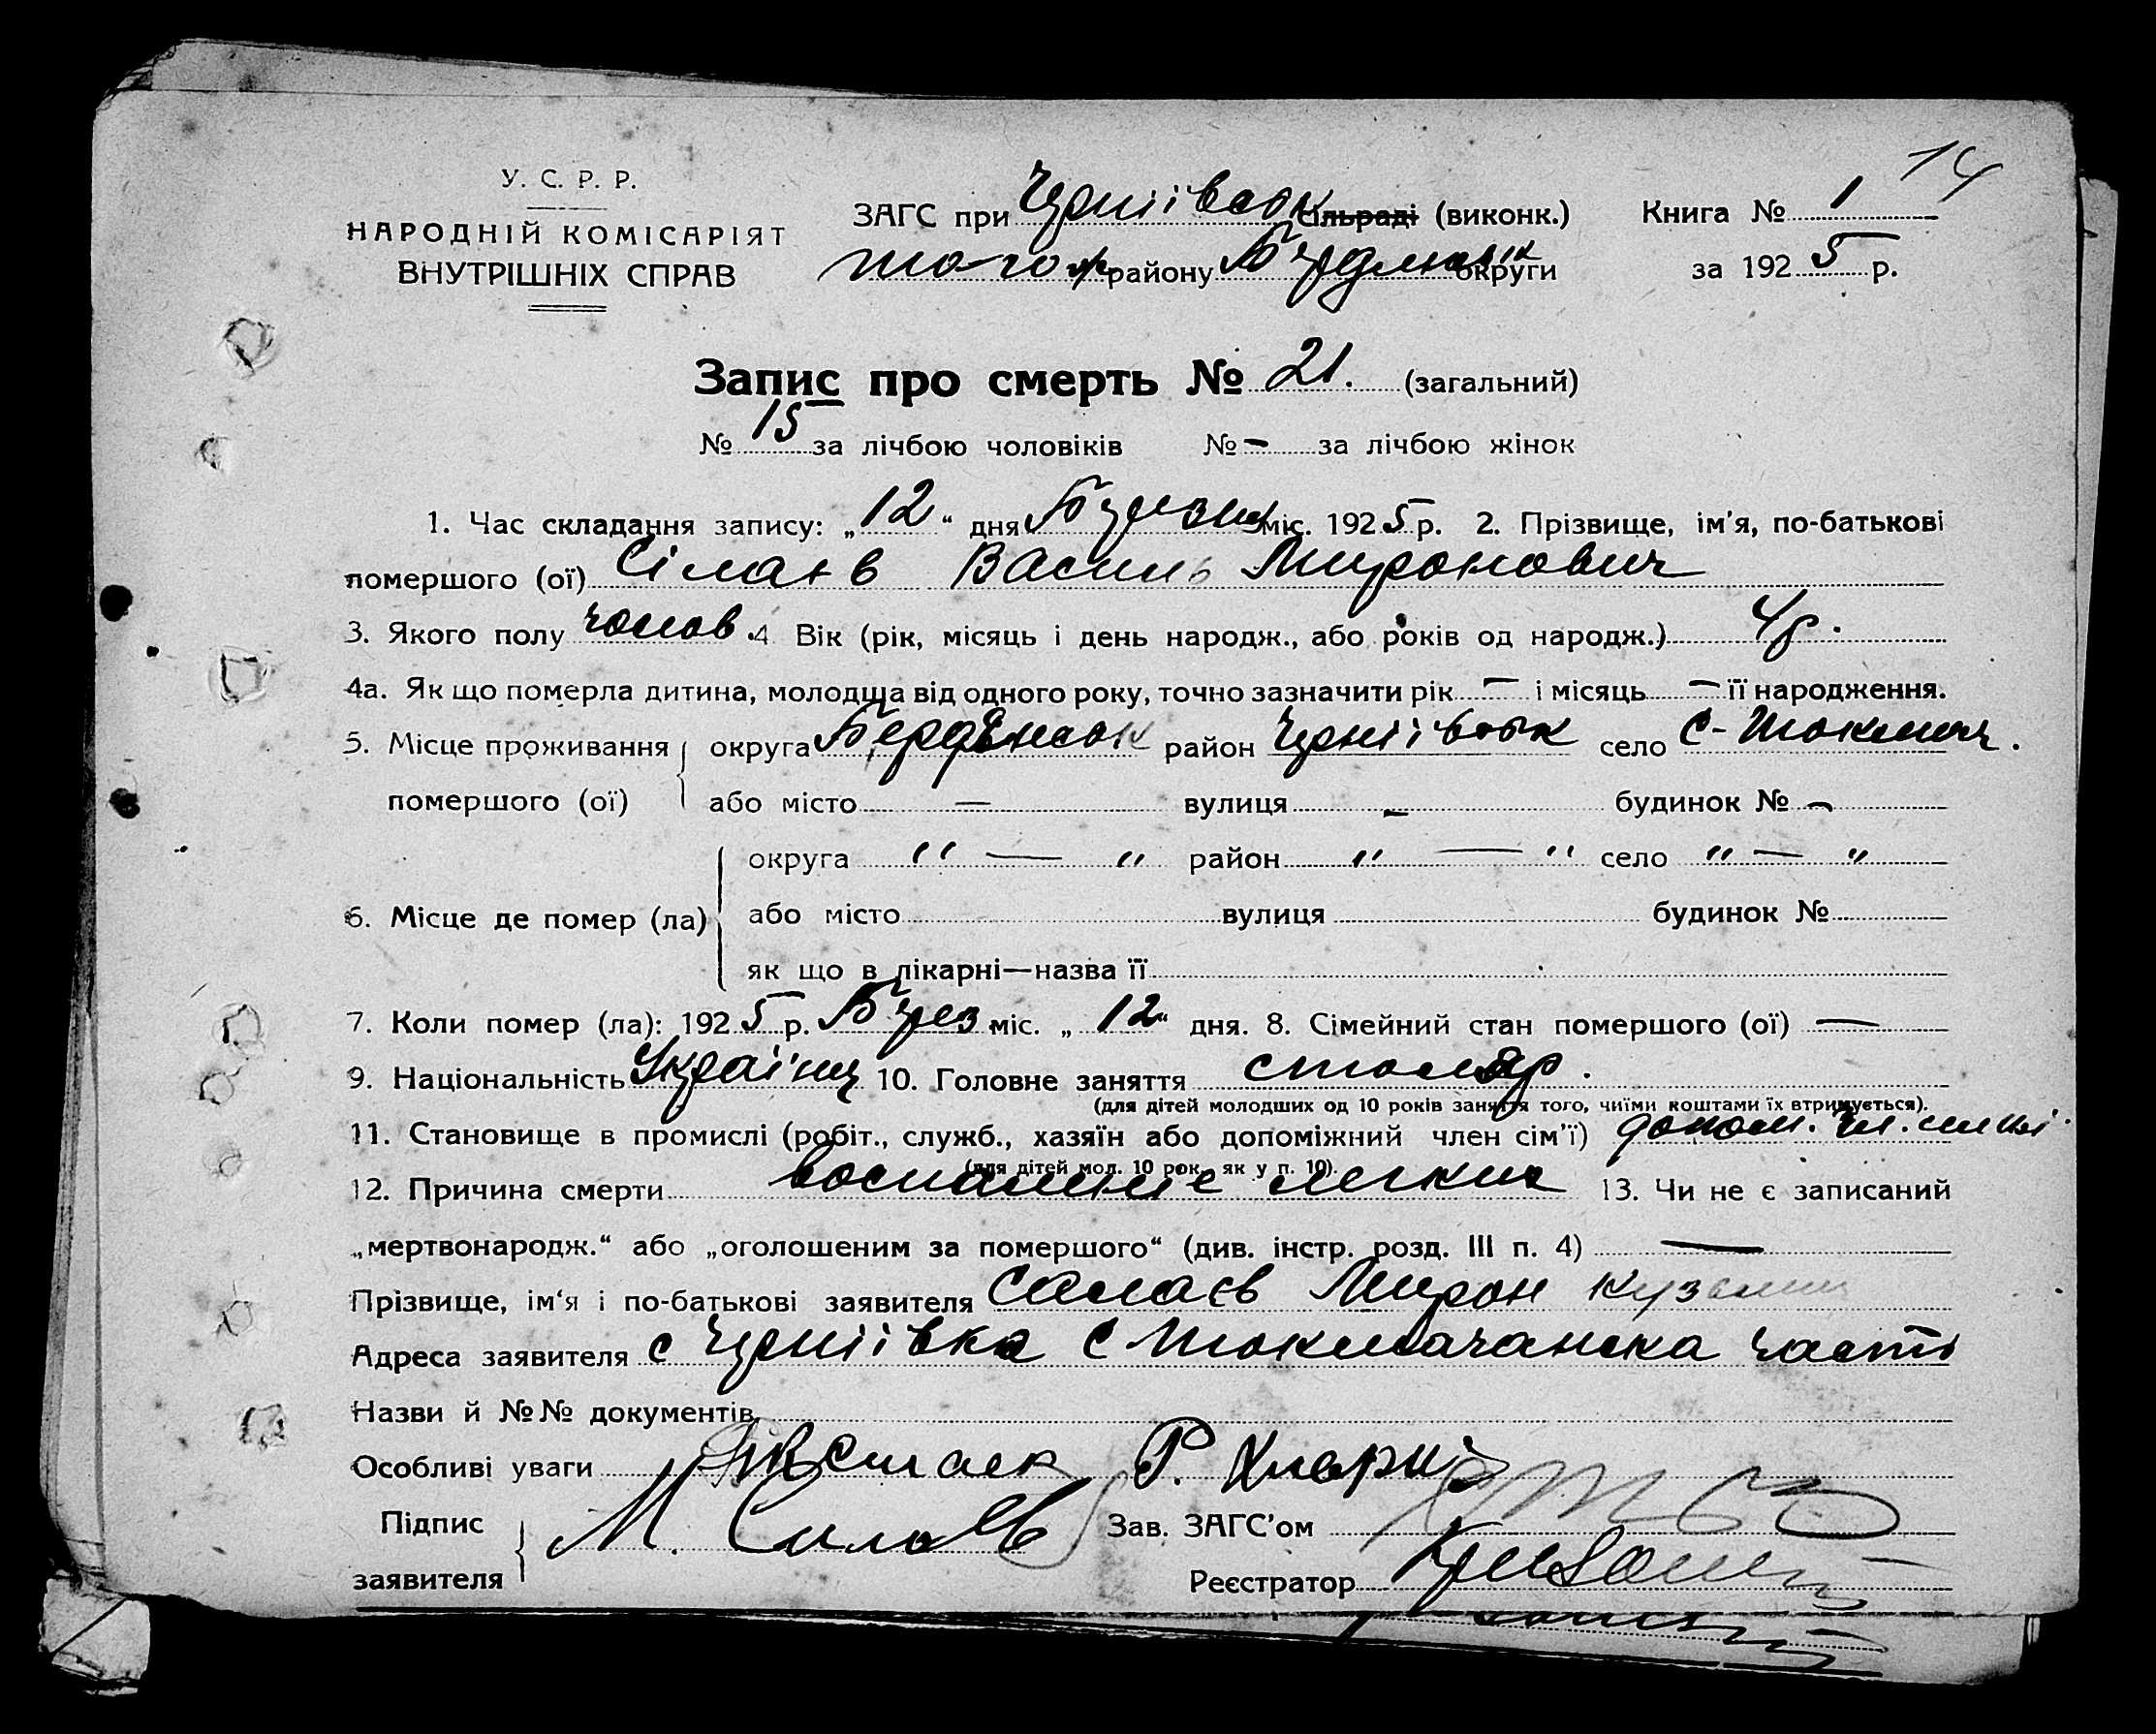 14
У. С. Р. Р.
НАРОДНІЙ КОМІСАРІЯТ
ВНУТРІШНІХ СПРАВ
ЗАГС при Черніївськ сільраді (виконк.)
Книга № 1
того ж району Бердянськ округи
за 1925 р.
Запис про смерть № 21. (загальний)
№ 15 за лічбою чоловіків № – за лічбою жінок
1. Час складання запису: „12“ дня Березня міс. 1925 р. 2. Прізвище, ім'я, по-батькові
помершого (ої) Сілаєв Василь Миронович
3. Якого полу чолов. 4 Вік (рік, місяць і день народж., або років од народж.) 4 р.
4а. Як що померла дитина, молодща від одного року, точно зазначити рік – і місяць – її народження.
5. Місце проживання помершого (ої) округа Бердянськ район Черніївськ село С-Токмач.
або місто – вулиця – будинок № –
6. Місце де помер (ла) округа " — " район " — " село " — "
або місто вулиця будинок №
як що в лікарні—назва її
7. Коли помер (ла): 1925 р. Берез міс. „12“ дня. 8. Сімейний стан помершого (ої) —
9. Національність Українц 10. Головне заняття столяр.
(для дітей молодших од 10 років заняття того, чиїми коштами їх втримується).
11. Становище в промислі (робіт., служб., хазяїн або допоміжний член сім'ї) допом. чл. симї.
(для дітей мол. 10 рок. як у п. 10).
12. Причина смерти воспаление легких 13. Чи не є записаний
„мертвонародж.“ або „оголошеним за помершого“ (див. інстр. розд. III п. 4) —
Прізвище, ім'я і по-батькові заявителя Силаєв Мирон Кузьмич
Адреса заявителя с Черніївка С Токмачанска часть
Назви й №№ документів
Особливі уваги
Підпис заявителя М. Силаев
Зав. ЗАГС'ом
Реєстратор